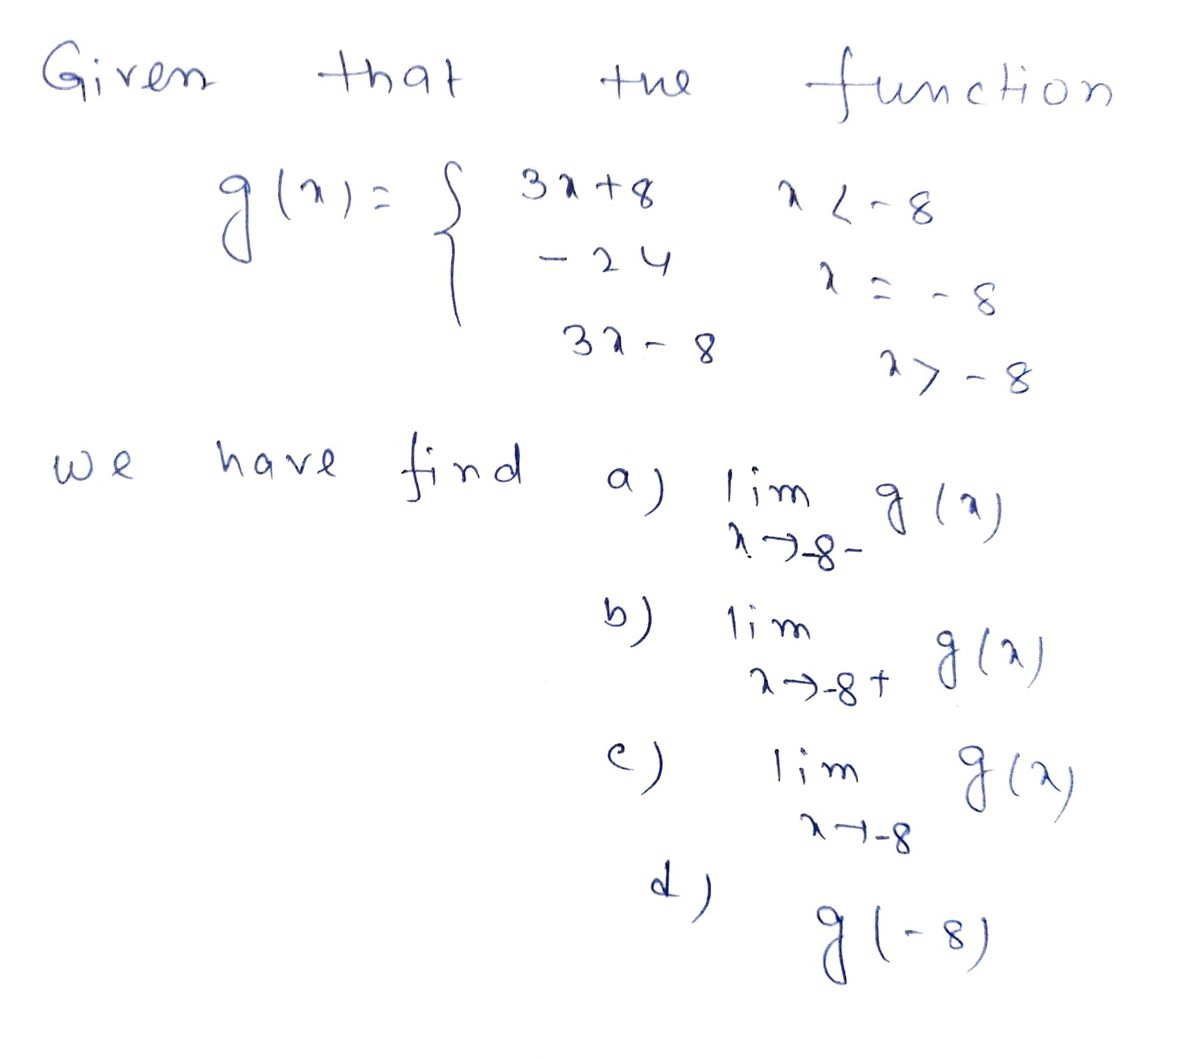 Given that the function
g(x) = { 3x+8 x < -8
-24 x = -8
3x - 8 x > -8
we have find a) lim g(x)
x→-8-
b) lim g(x)
x→-8+
c) lim g(x)
x→-8
d) g(-8)